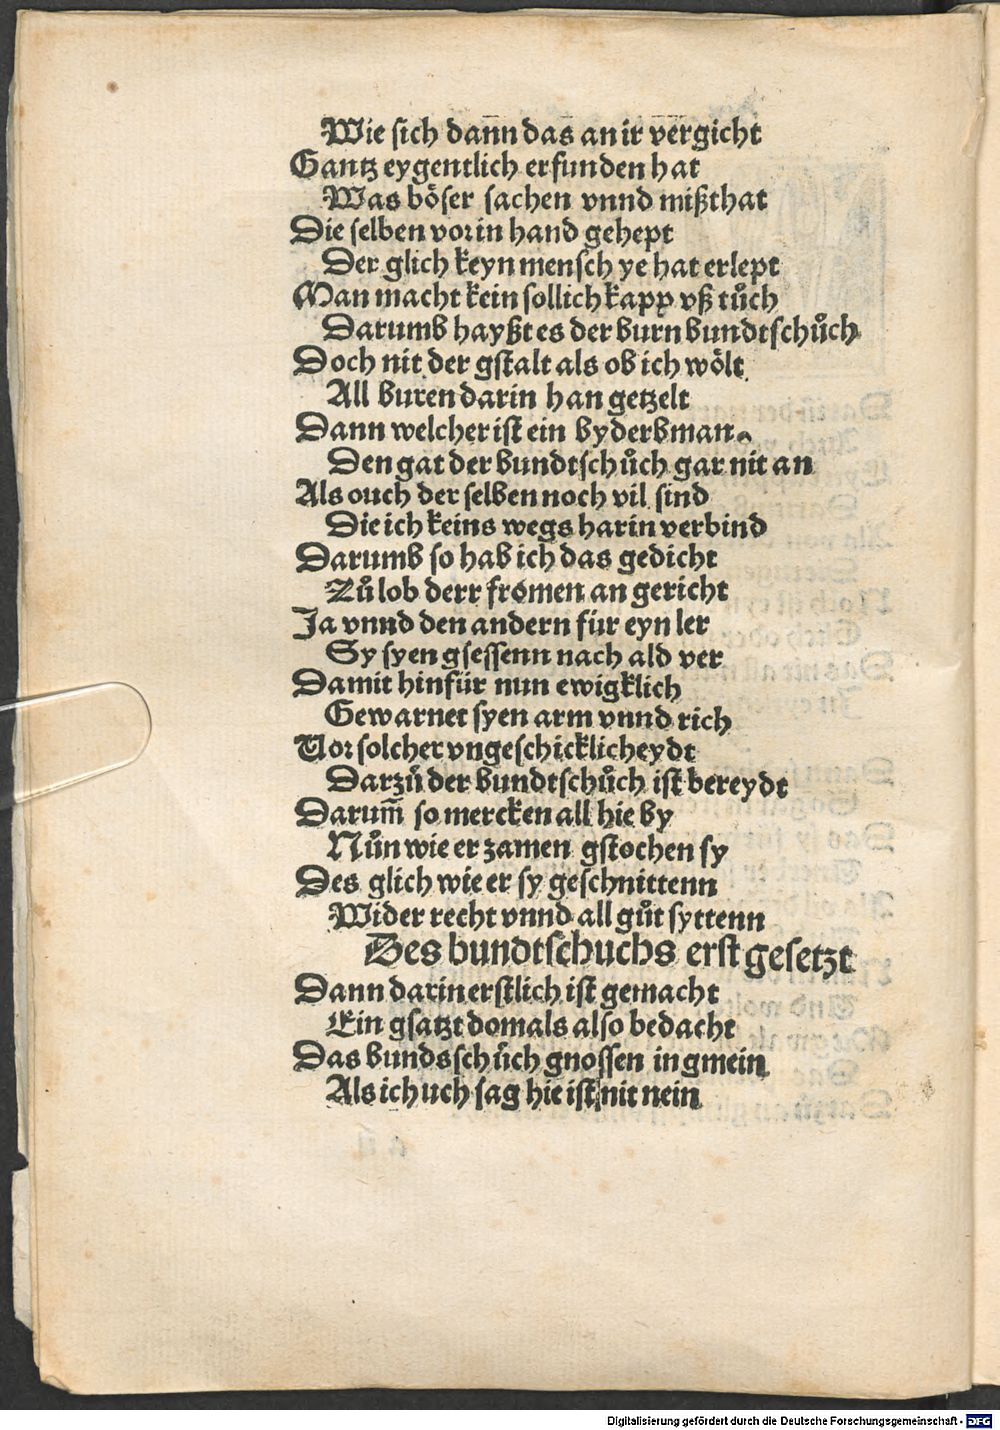 Wie sich dann das an ir vergicht
Gantz eygentlich erfunden hat
Was böser sachen vnnd mißthat
Die selben vor in hand gehept
Der glich keyn mensch ye hat erlept
Man macht kein sollich kapp vß tůch
Darumb hayßt es der burn bundtschůch
Doch nit der gstalt als ob ich wölt
All buren darin han getzelt
Dann welcher ist ein byderbman
Den gat der bundtschůch gar nit an
Als ouch der selben noch vil sind
Die ich keins wegs harin verbind
Darumb so hab ich das gedicht
Zů lob derr fromen an gericht
Ja vnnd den andern für eyn ler
Sy syen gsessenn nach ald ver
Damit hinfür nun ewigklich
Gewarnet syen arm vnnd rich
Vor solcher vngeschicklicheydt
Darzů der bundtschůch ist bereydt
Darum̃ so mercken all hie by
Nůn wie er zamen gstochen sy
Des glich wie er sy geschnittenn
Wider recht vnnd all gůt syttenn
Des bundtschuchs erst gesetzt
Dann darin erstlich ist gemacht
Ein gsatzt domals also bedacht
Das bundsschůch gnossen in gmein
Als ich uch sag hie ist nit nein
Digitalisierung gefördert durch die Deutsche Forschungsgemeinschaft - DFG